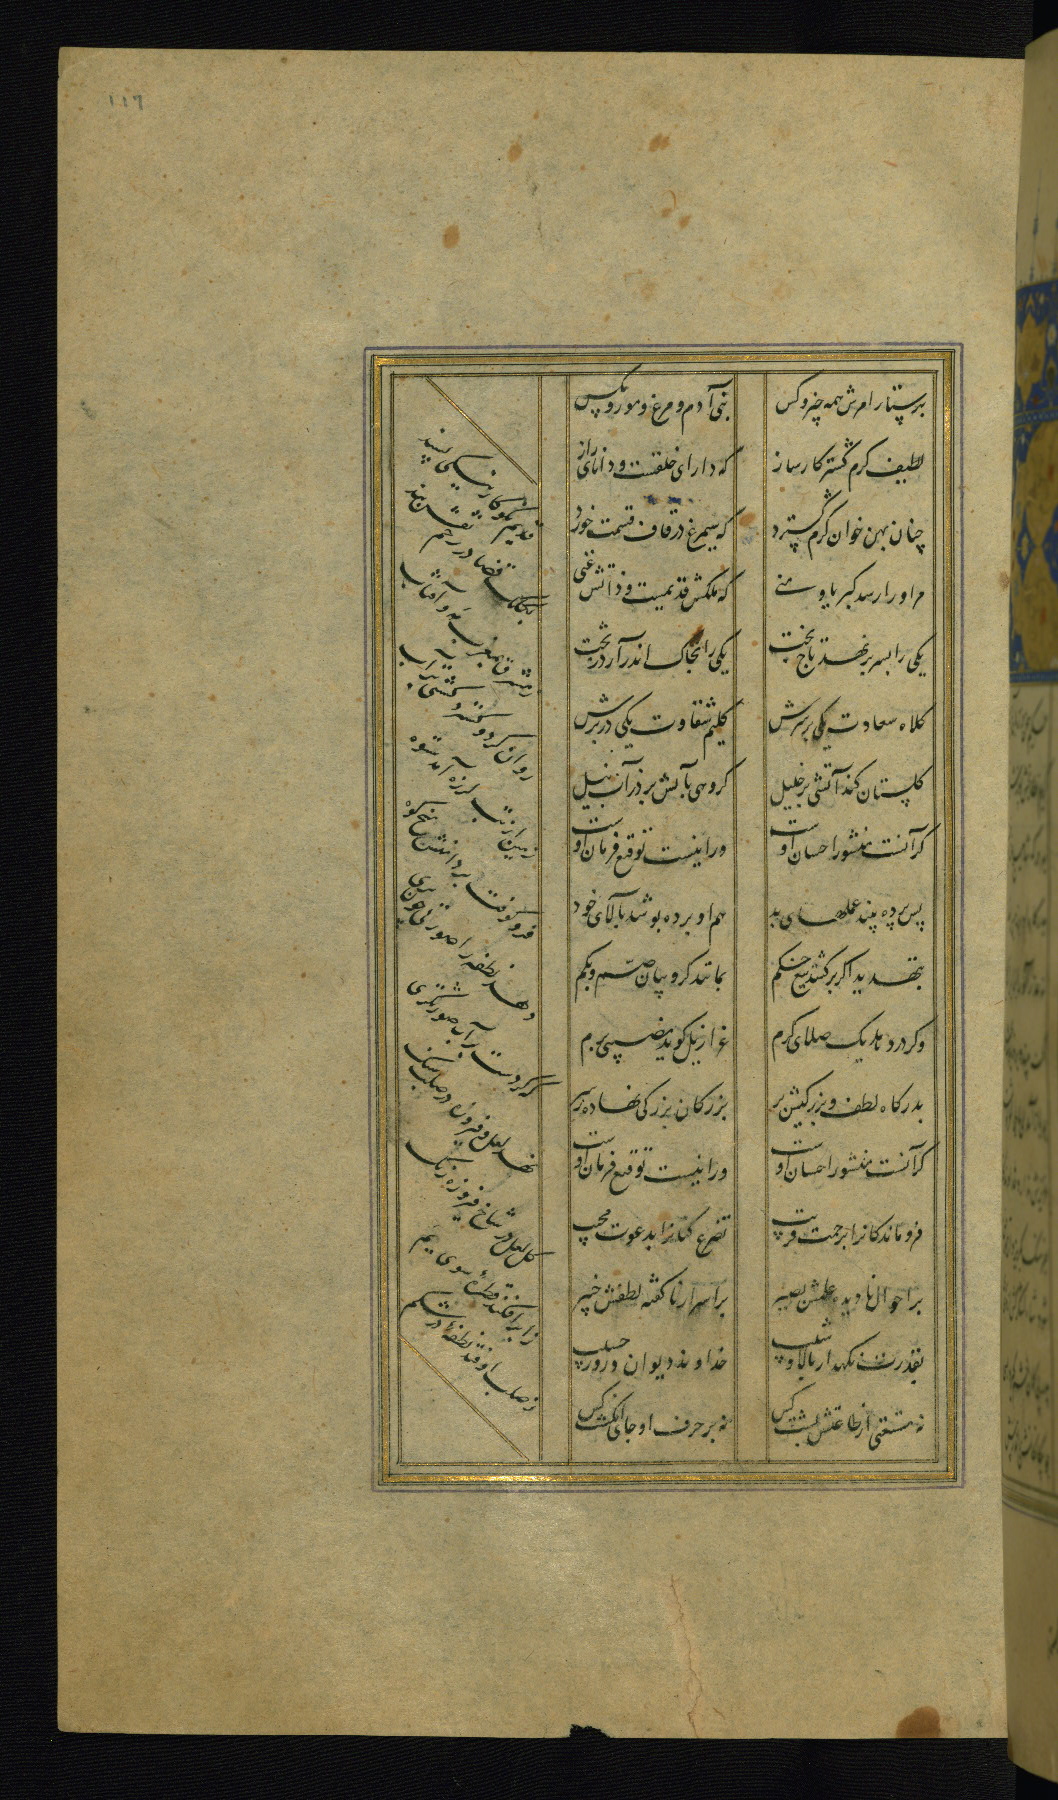 پرستار امرش همه چیز و کس بنی آدم و مرغ و مور و مکس
لطیف کرم گستر کارساز که دارای خلقست و دانای راز
چنان پهن خوان کرم گسترد که سیمرغ در قاف قسمت خورد
مراو را رسد کبریا و منی که ملکش قدیمست و ذاتش غنی
یکی را بسر بر نهد تاج بخت یکی را بخاک اندر آرد ز تخت
کلاه سعادت یکی بر سرش کلیم شقاوت یکی در برش
کلستان کند آتشی بر خلیل کروهی بآتش برد ز آب نیل
کر آنست منشور احسان اوست ور اینست توقیع فرمان اوست
پس پرده بیند عملهای بد هم او پرده پوشد بآلای خود
بتهدید اکر برکشد تیغ حکم بمانند کروبیان صم و بکم
وکر در دهد یک صلای کرم عزازیل کوید نصیبی برم
بدرکاه لطف و بزرکیش بر بزرکان بزرکی نهاده ز سر
کر آنست منشور احسان اوست ور اینست توقیع فرمان اوست
فروماندکانرا برحمت قریب تضرع کنانرا بدعوت مجیب
بر احوال نادیده علمش بصیر بر اسرار ناکفته لطفش خبیر
بقدرت نکهدار بالا و شیب خداوند دیوان روز حسیب
نه مستغنی از طاعتش پشت کس نه بر حرف او جای انکشت کس
قدیمی نکوکار نیکی پسند
بکلک قضا در رحم نقش بند
ز مشرق بمغرب مه و آفتاب
روان کرد و کسترد کیتی بر آب
زمین از تب لرزه آمد ستوه
فرو کوفت بر دامنش میخ کوه
دهد نطفه را صورتی چون پری
که کردست بر آب صورتکری
نهد لعل و فیروزه در صلب سنک
کل لعل در شاخ فیروزه رنک
ز ابر افکند قطره سوی یم
ز صلب اوفتد نطفه در شکم